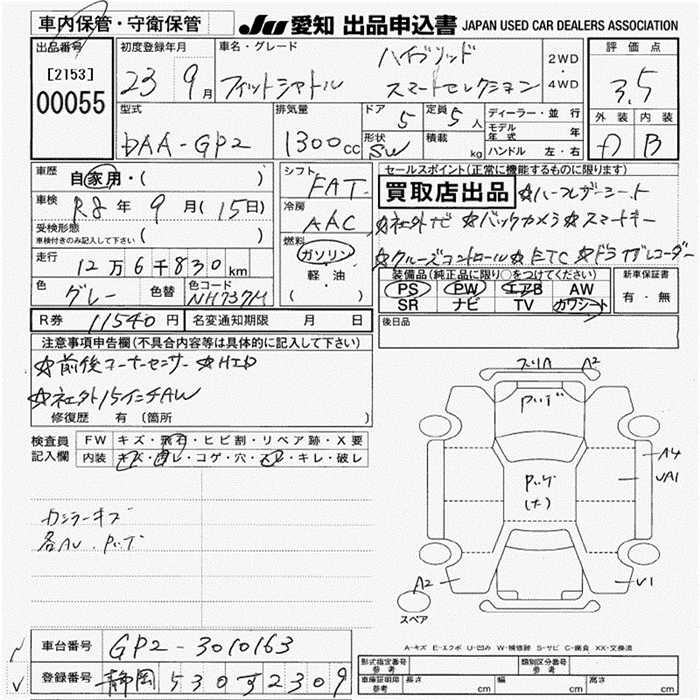 車内保管・守衛保管
JU 愛知 出品申込書 JAPAN USED CAR DEALERS ASSOCIATION
出品番号 [2153] 00055
初度登録年月 23 9月
車名・グレード フィットシャトル ハイブリッド スマートセレクション
2WD・4WD
評価点 3.5
外装 内装 B
型式 DAA-GP2
排気量 1300cc
ドア 5
定員 5人
形状 SW
積載 kg
ディーラー・並行
モデル年式 年
ハンドル 左・右
車歴 自家用・( )
車検 R8年 9月(15日)
受検形態 車検付きのみ記入して下さい ( )
走行 12万6千830km
色 グレー 色替 色コード NH737M
R券 11540円 名変通知期限 月 日
シフト FAT
冷房 AAC
燃料 ガソリン 軽・油 ( )
セールスポイント(正常に機能するものに限ります。)
買取店出品 ☆ハーフレザーシート
☆社外ナビ ☆バックカメラ☆スマートキー
☆クルーズコントロール☆ETC☆ドラブレコーダー
装備品(純正品に限り○をつけてください) 新車保証書
PS PW エアB AW 有・無
SR ナビ TV カワシート
後日品
注意事項申告欄(不具合内容等は具体的に記入して下さい)
☆前後コーナーセンサー ☆HID
☆社外15インチAW
修復歴 有 (箇所
検査員記入欄 FW キズ・飛石・ヒビ割・リペア跡・X要
内装 キズ・コゲ・穴・キレ・破レ
カンラーキズ
スリA A2
A4
UA1
A2
U1
スペア
A-キズ E-エクボ U-凹み W-補修跡 S-サビ C-腐食 XX-交換済
車台番号 GP2-3010163
登録番号 静岡 530 す2309
型式指定番号 参考 類別区分番号 参考
車庫証明用 参考 長さ cm 幅 cm 高さ cm